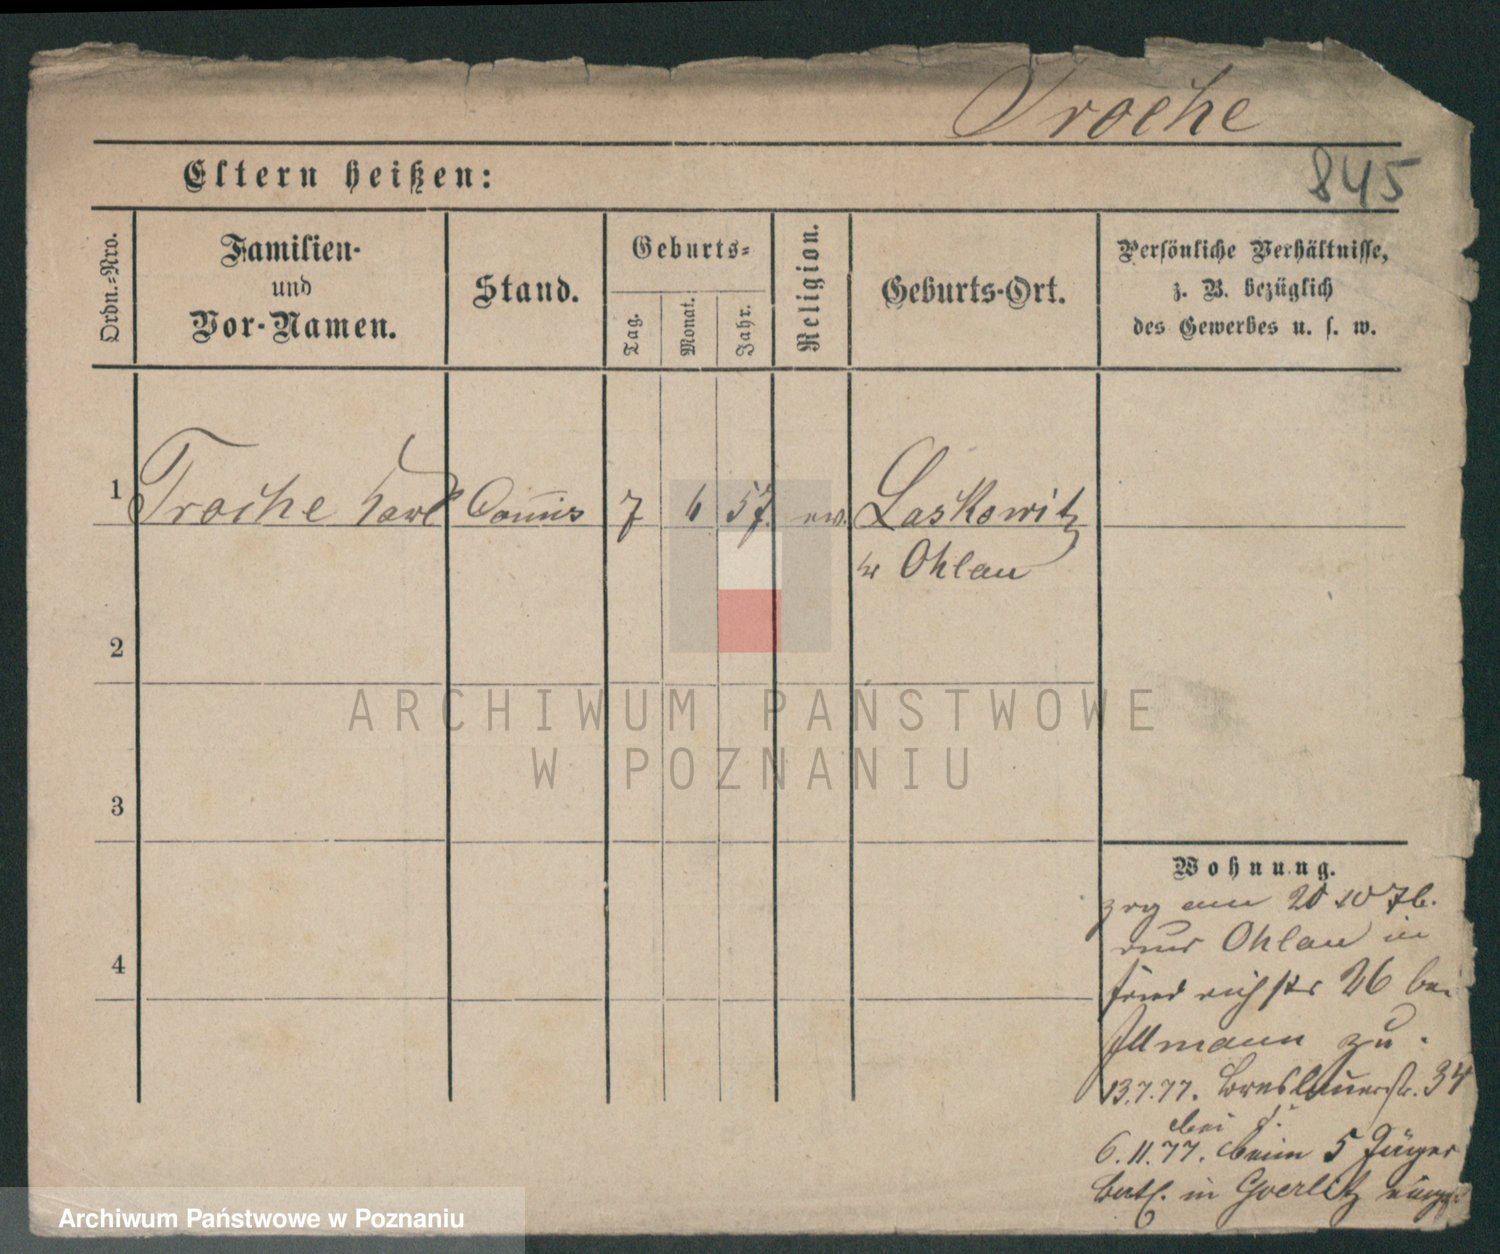 Troche
845
Eltern heißen:
Ordn.-Nro.
Familien-
und
Vor-Namen.
Stand.
Geburts-
Tag.
Monat.
Jahr.
Religion.
Geburts-Ort.
Persönliche Verhältnisse,
z. B. bezüglich
des Gewerbes u. s. w.
1 Troche Karl Commis 7 6 57. ev. Laskowitz
Ohlau
2
3
4
Wohnung.
zog am 20 10 76.
aus Ohlau in
Friedrichstr 26 bei
Illmann zu.
13.7.77. Breslauerstr. 34
bei
6.11.77. beim 5 Jäger
Batl. in Goerlitz
ARCHIWUM PAŃSTWOWE
W POZNANIU
Archiwum Państwowe w Poznaniu